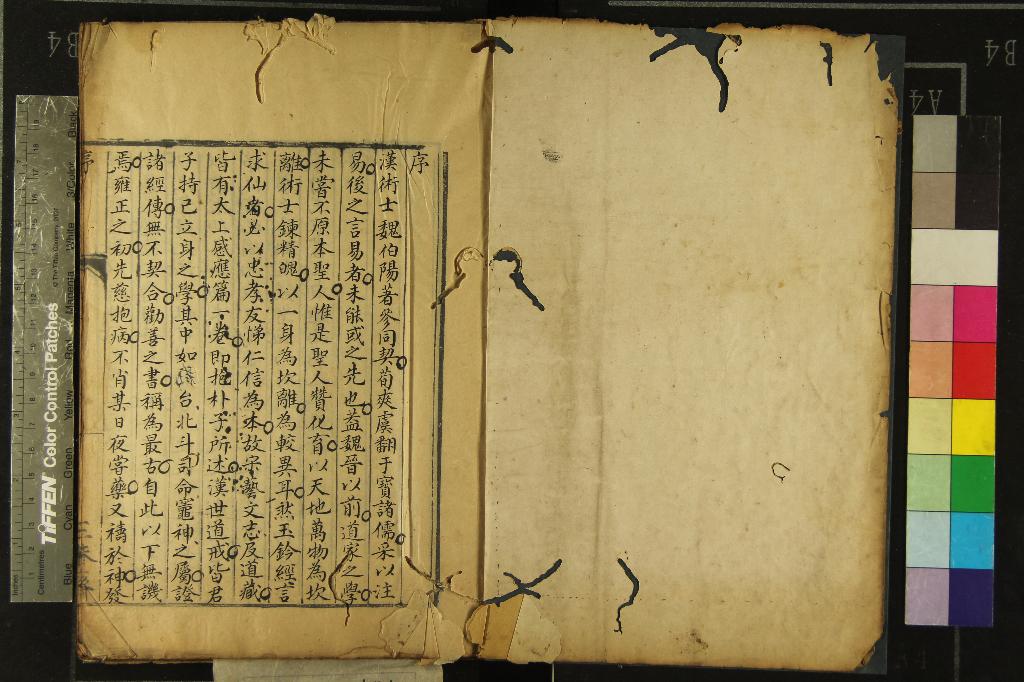 序
漢術士魏伯陽著參同契荀爽虞翻干寶諸儒采以注
易後之言易者未能或之先也蓋魏晉以前道家之學
未嘗不原本聖人惟是聖人贊化育以天地萬物為坎
離術士鍊精魄以一身為坎離為較異耳然玉鈐經言
求仙者必以忠孝友悌仁信為本故宋藝文志及道藏
皆有太上感應篇一卷即抱朴子所述漢世道戒皆君
子持己立身之學其中如三台北斗司命竈神之屬證
諸經傳無不契合勸善之書稱為最古自此以下無譏
焉雍正之初先慈抱病不肖某日夜嘗藥又禱於神發
序
B4
B4
A4
TIFFEN Color Control Patches
© The Tiffen Company, 2007
Inches
Centimetres
Blue
Cyan
Green
Yellow
Red
Magenta
White
3/Color
Black